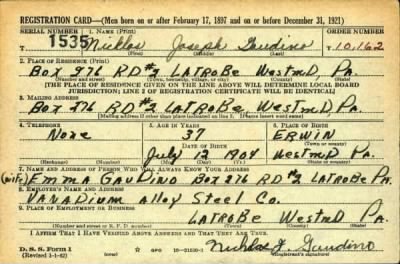 REGISTRATION CARD—(Men born on or after February 17, 1897 and on or before December 31, 1921)
SERIAL NUMBER 1. NAME (Print) ORDER NUMBER
1535 Nicklos Joseph Gaudino 10,162
(First) (Middle) (Last)
2. PLACE OF RESIDENCE (Print)
Box 276 RD #2 LATROBE WestmD, PA.
(Number and street) (Town, township, village, or city) (County) (State)
[THE PLACE OF RESIDENCE GIVEN ON THE LINE ABOVE WILL DETERMINE LOCAL BOARD
JURISDICTION; LINE 2 OF REGISTRATION CERTIFICATE WILL BE IDENTICAL]
3. MAILING ADDRESS
Box 276 RD #2 LATROBE WestmD PA.
[Mailing address if other than place indicated on line 2. If same insert word same]
4. TELEPHONE 5. AGE IN YEARS 6. PLACE OF BIRTH
None 37 ERWIN
DATE OF BIRTH (Town or county)
July 12 1904 WestmD PA.
(Exchange) (Number) (Mo.) (Day) (Yr.) (State or country)
7. NAME AND ADDRESS OF PERSON WHO WILL ALWAYS KNOW YOUR ADDRESS
(wife) EMMA GAUDINO Box 276 RD #2 LATROBE PA.
8. EMPLOYER'S NAME AND ADDRESS
VANADIUM Alloy Steel Co.
9. PLACE OF EMPLOYMENT OR BUSINESS
LATROBE WestmD PA.
(Number and street or R. F. D. number) (Town) (County) (State)
I AFFIRM THAT I HAVE VERIFIED ABOVE ANSWERS AND THAT THEY ARE TRUE.
D. S. S. Form 1
(Revised 1-1-42) GPO 16—21630-1 Nicklos J. Gaudino
(Registrant's signature)